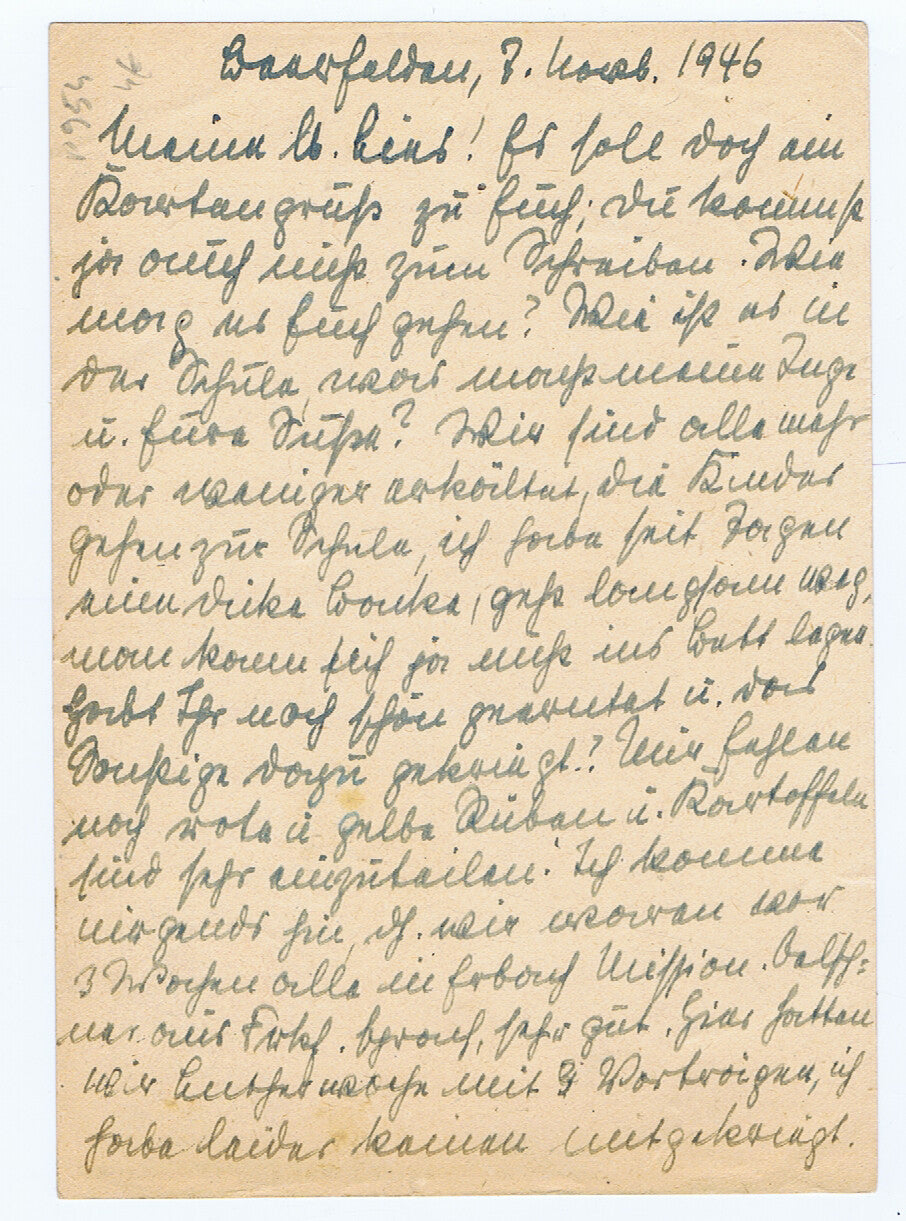 Beerfelden, 7. Novb. 1946
Meine lb. Lies! Es soll doch ein
Kartengruß zu Euch; du kommst
ja auch nicht zum Schreiben. Wie
mag es Euch gehen? Wie ist es in
der Schule, was macht meine Inge
u. Eure Süße? Wir sind alle mehr
oder weniger erkältet, die Kinder
gehen zur Schule, ich habe seit Tagen
eine dicke Backe, geht langsam weg,
man kann sich ja nicht ins Bett legen.
Habt Ihr noch schön geerntet u. das
Sonstige dazu gekriegt? Mir fehlen
noch rote u gelbe Rüben u. Kartoffeln
sind sehr einzuteilen. Ich komme
nirgends hin, dh. wir waren vor
3 Wochen alle in Erbach Mission. Oelsch=
ner aus Frkf. sprach, sehr gut. Hier hatten
wir Lutherwoche mit Vorträgen, ich
habe leider keinen mitgekriegt.